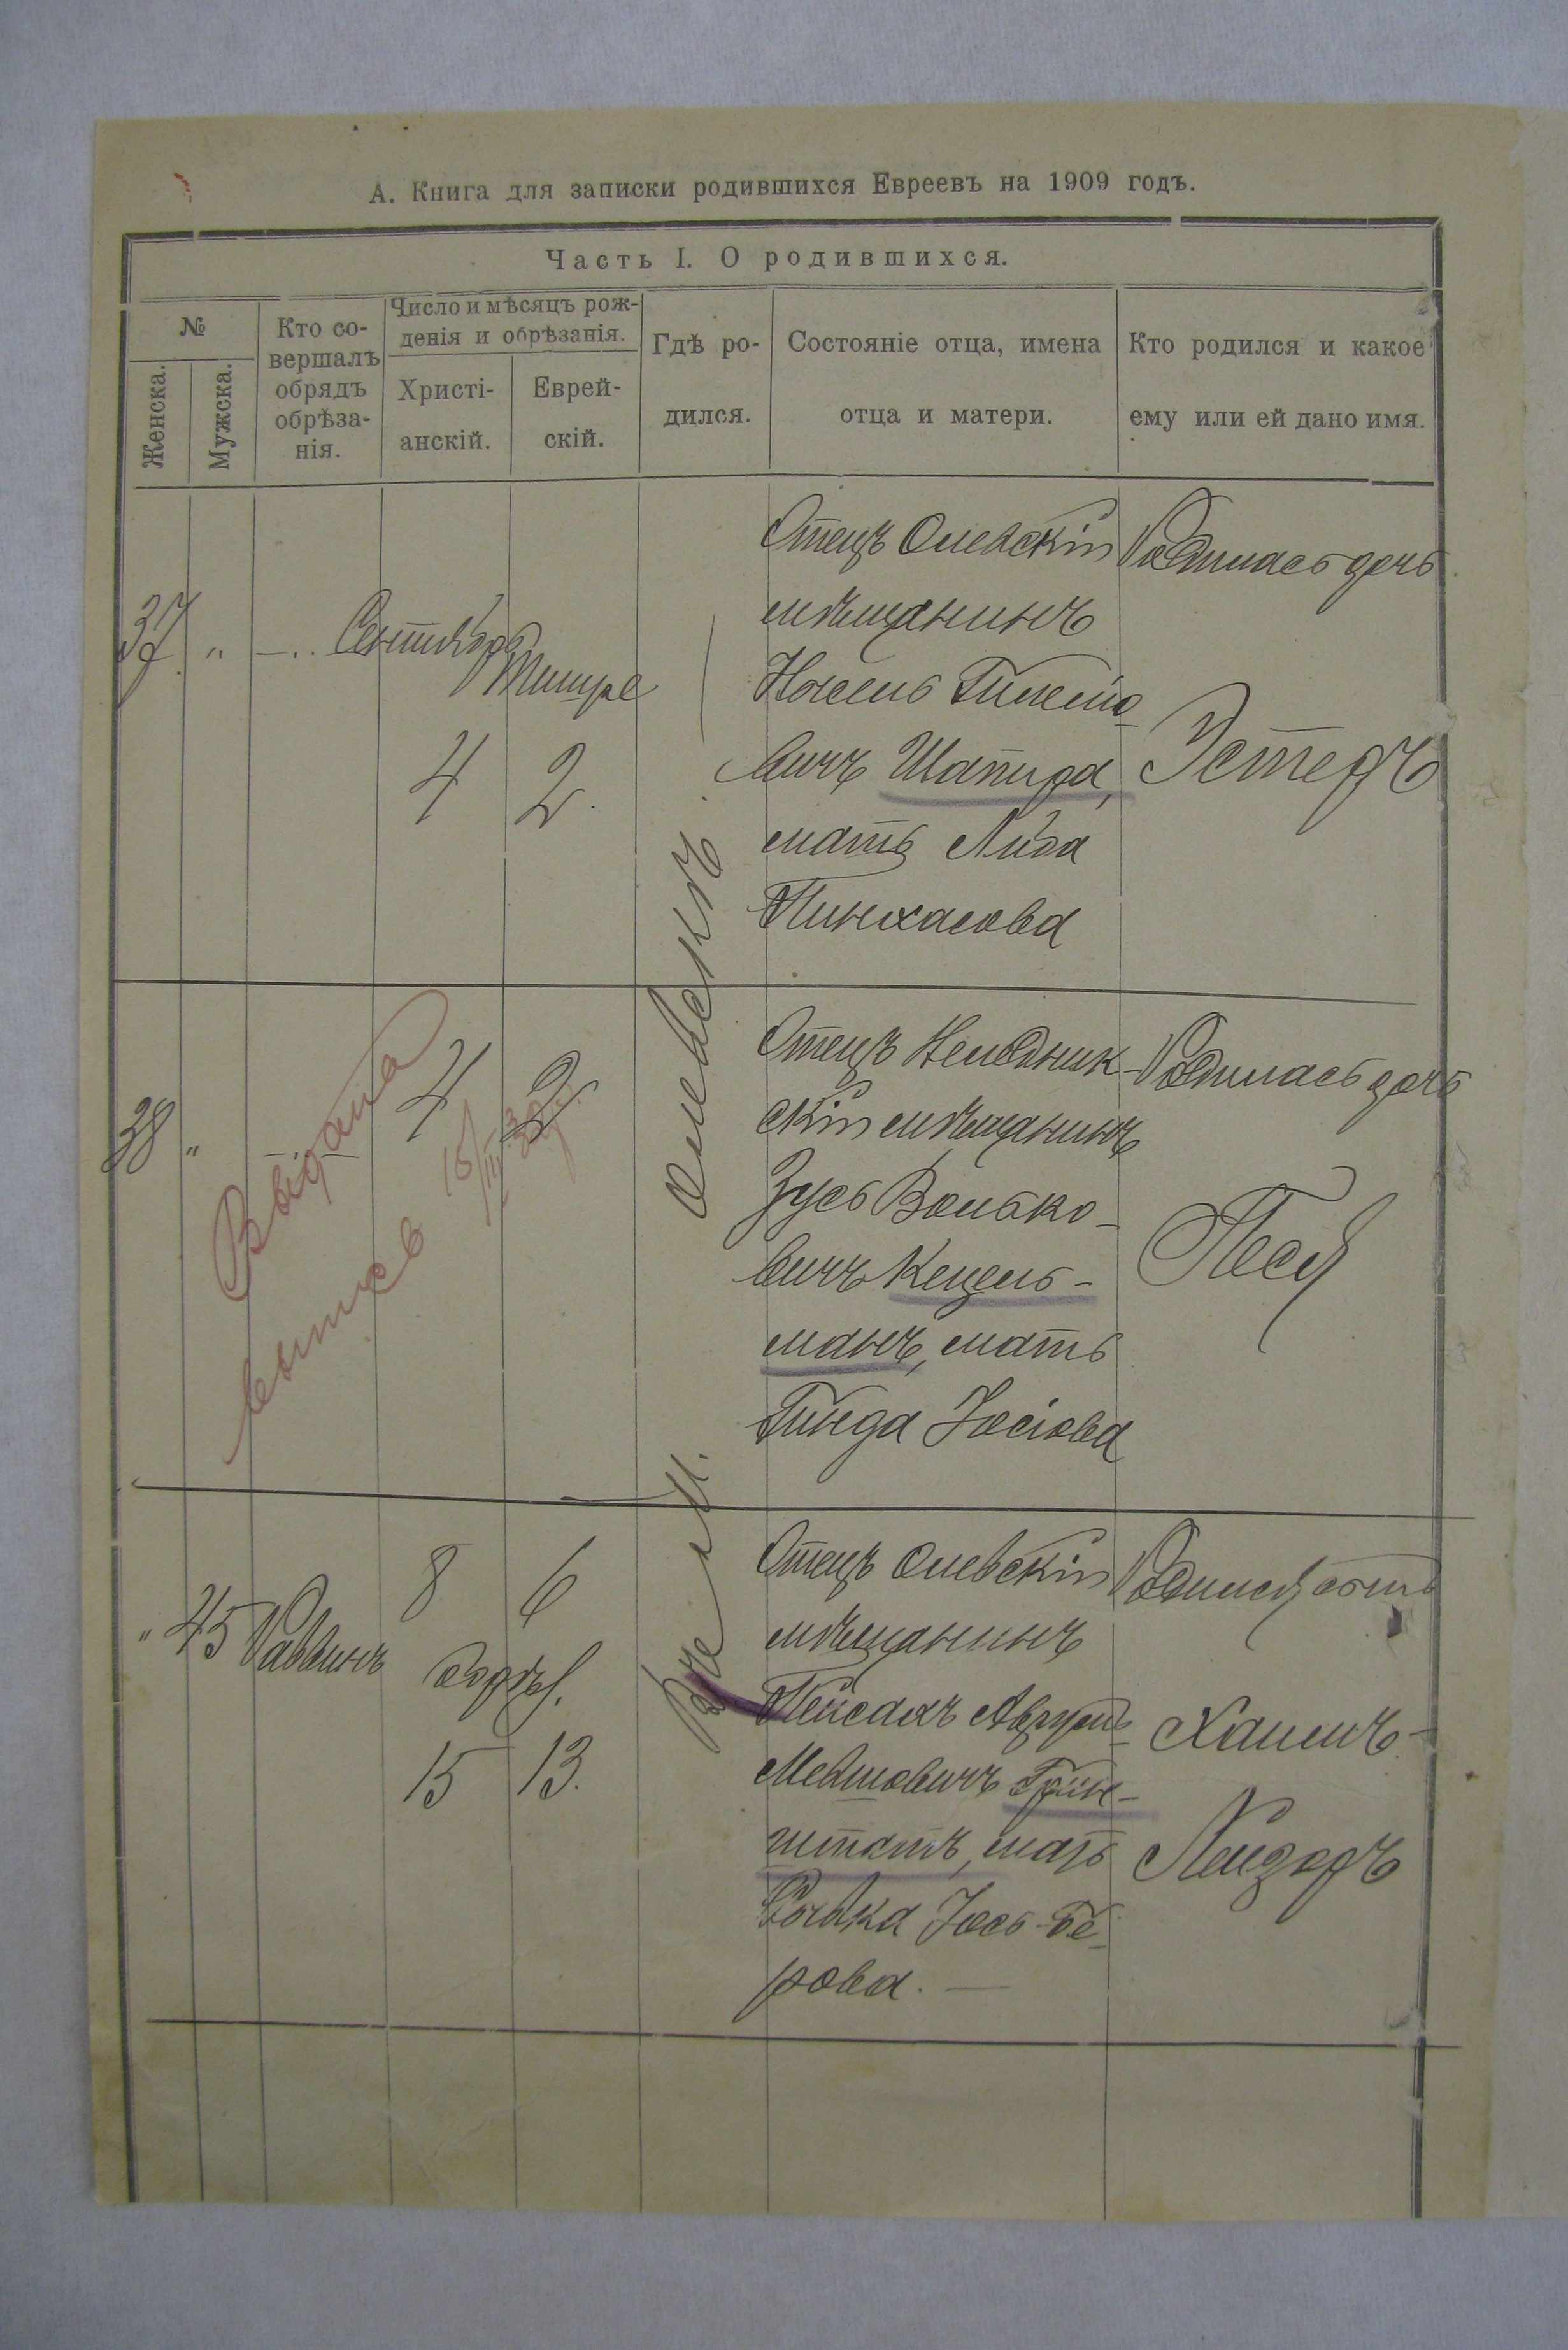 А. Книга для записки родившихся Евреевъ на 1909 годъ.
Часть I. О родившихся.
№
Женска.
Мужска.
Кто со-
вершалъ
обрядъ
обрѣза-
нія.
Число и мѣсяцъ рож-
денія и обрѣзанія.
Христі-
анскій.
Еврей-
скій.
Гдѣ ро-
дился.
Состояніе отца, имена
отца и матери.
Кто родился и какое
ему или ей дано имя.
37 " — Сентября
Тишре
4 2.
Въ м. Олевскѣ.
Отецъ Олевскій
мѣщанинъ
вичъ Шапира,
мать Люба
Пинхасова
Родилась дочь
Эстеръ
38 "
4 2
Выдана
15/III 39
Отецъ
скій мѣщанинъ
Зусь Волько-
вичъ Кецель-
манъ, мать
Гинда Іосіова
Родилась дочь
Песя
" 45 Раввинъ
8 6
15 13.
Отецъ Олевскій
мѣщанинъ
Пейсахъ
Мейловичъ Грин-
штатъ, мать
Іось-Бе-
рова. —
Родился сынъ
Хаимъ-
Лейзоръ